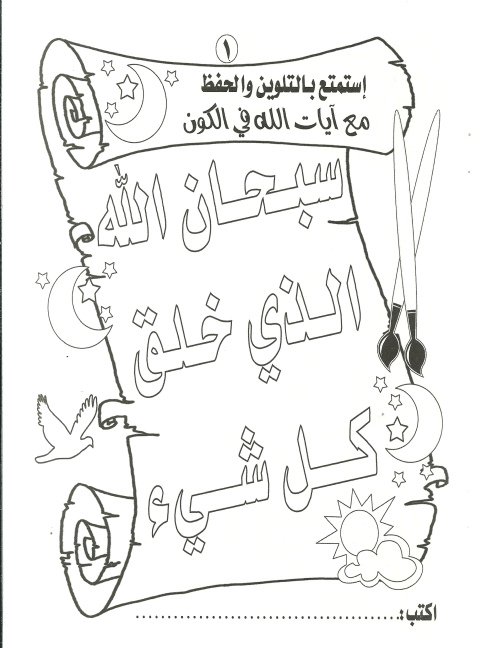 ١
إستمتع بالتلوين والحفظ
مع آيات الله في الكون
سبحان الله
الذي خلق
كل شيء
اكتب :........................................